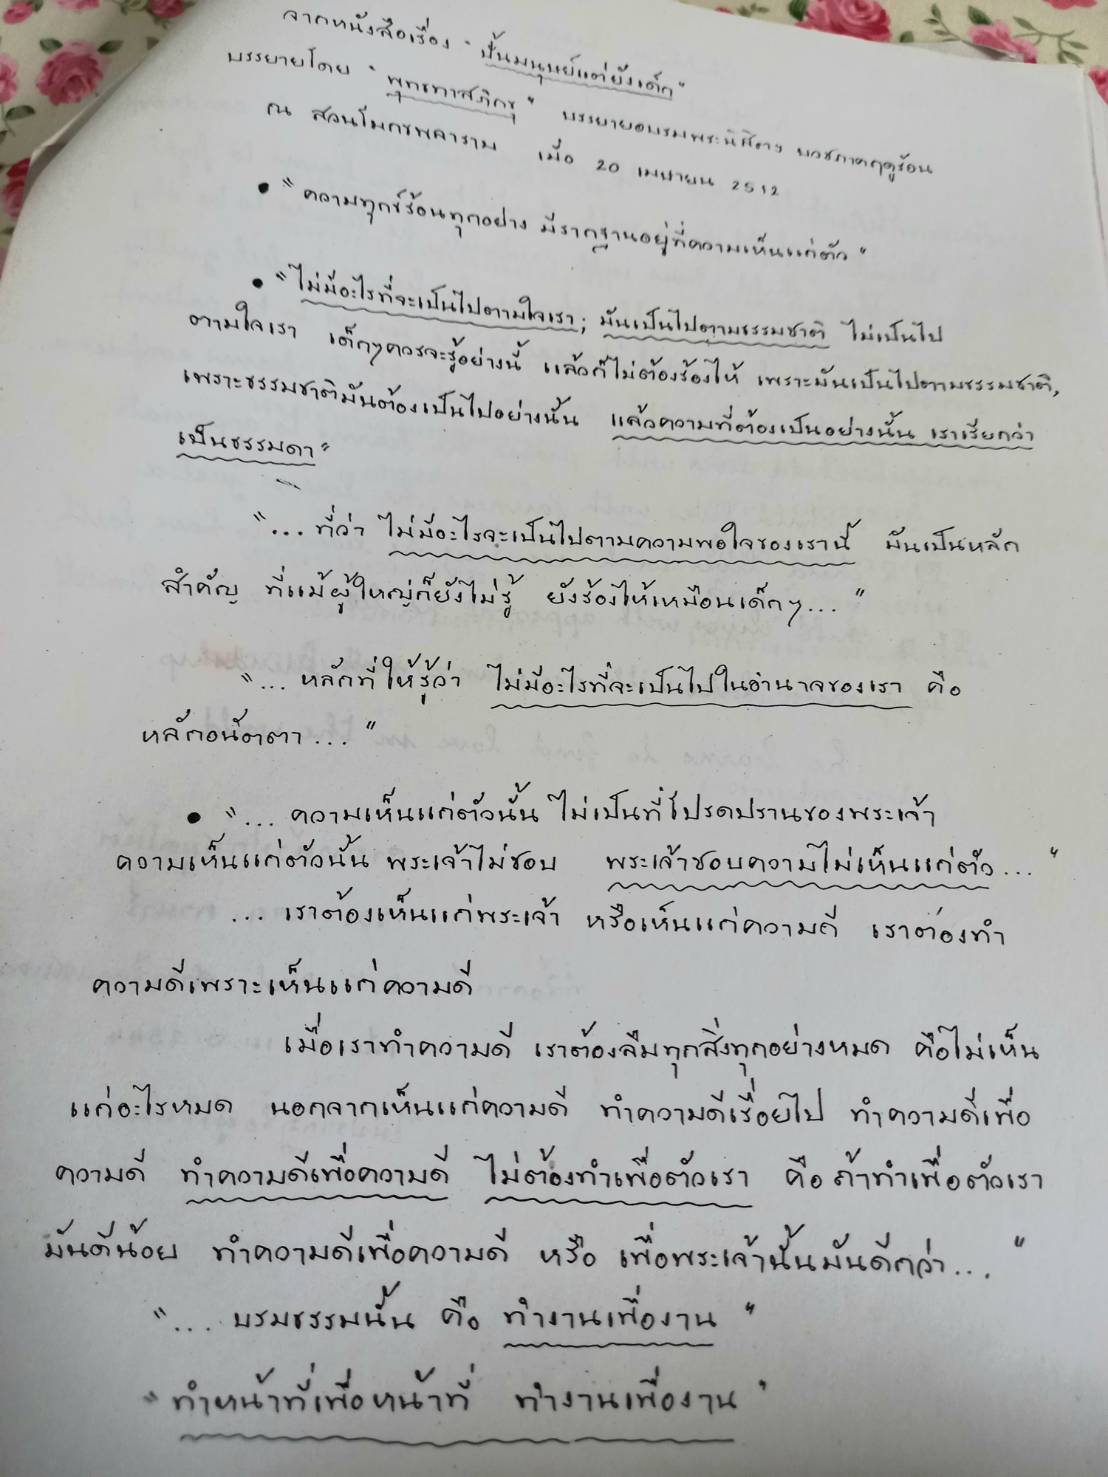 จากหนังสือเรื่อง "ปั้นมนุษย์แต่ยังเด็ก"
บรรยายโดย "พุทธทาสภิกขุ" บรรยายอบรมพระนิสิตฯ บวชภาคฤดูร้อน
ณ สวนโมกขพลาราม เมื่อ 20 เมษายน 2512
• "ความทุกข์ร้อนทุกอย่าง มีรากฐานอยู่ที่ความเห็นแก่ตัว"
• "ไม่มีอะไรที่จะเป็นไปตามใจเรา; มันเป็นไปตามธรรมชาติ ไม่เป็นไป
ตามใจเรา เด็กๆควรจะรู้อย่างนี้ แล้วก็ไม่ต้องร้องไห้ เพราะมันเป็นไปตามธรรมชาติ,
เพราะธรรมชาติมันต้องเป็นไปอย่างนั้น แล้วความที่ต้องเป็นอย่างนั้น เราเรียกว่า
เป็นธรรมดา"
"... ที่ว่า ไม่มีอะไรจะเป็นไปตามความพอใจของเรานี้ มันเป็นหลัก
สำคัญ ที่แม้ผู้ใหญ่ก็ยังไม่รู้ ยังร้องไห้เหมือนเด็กๆ..."
"... หลักที่ให้รู้ว่า ไม่มีอะไรที่จะเป็นไปในอำนาจของเรา คือ
หลักอนัตตา..."
• "... ความเห็นแก่ตัวนั้น ไม่เป็นที่โปรดปรานของพระเจ้า
ความเห็นแก่ตัวนั้น พระเจ้าไม่ชอบ พระเจ้าชอบความไม่เห็นแก่ตัว..."
... เราต้องเห็นแก่พระเจ้า หรือเห็นแก่ความดี เราต้องทำ
ความดีเพราะเห็นแก่ความดี
เมื่อเราทำความดี เราต้องลืมทุกสิ่งทุกอย่างหมด คือไม่เห็น
แก่อะไรหมด นอกจากเห็นแก่ความดี ทำความดีเรื่อยไป ทำความดีเพื่อ
ความดี ทำความดีเพื่อความดี ไม่ต้องทำเพื่อตัวเรา คือ ถ้าทำเพื่อตัวเรา
มันดีน้อย ทำความดีเพื่อความดี หรือ เพื่อพระเจ้านั้นมันดีกว่า..."
"... บรมธรรมนั้น คือ ทำงานเพื่องาน"
"ทำหน้าที่เพื่อหน้าที่ ทำงานเพื่องาน"